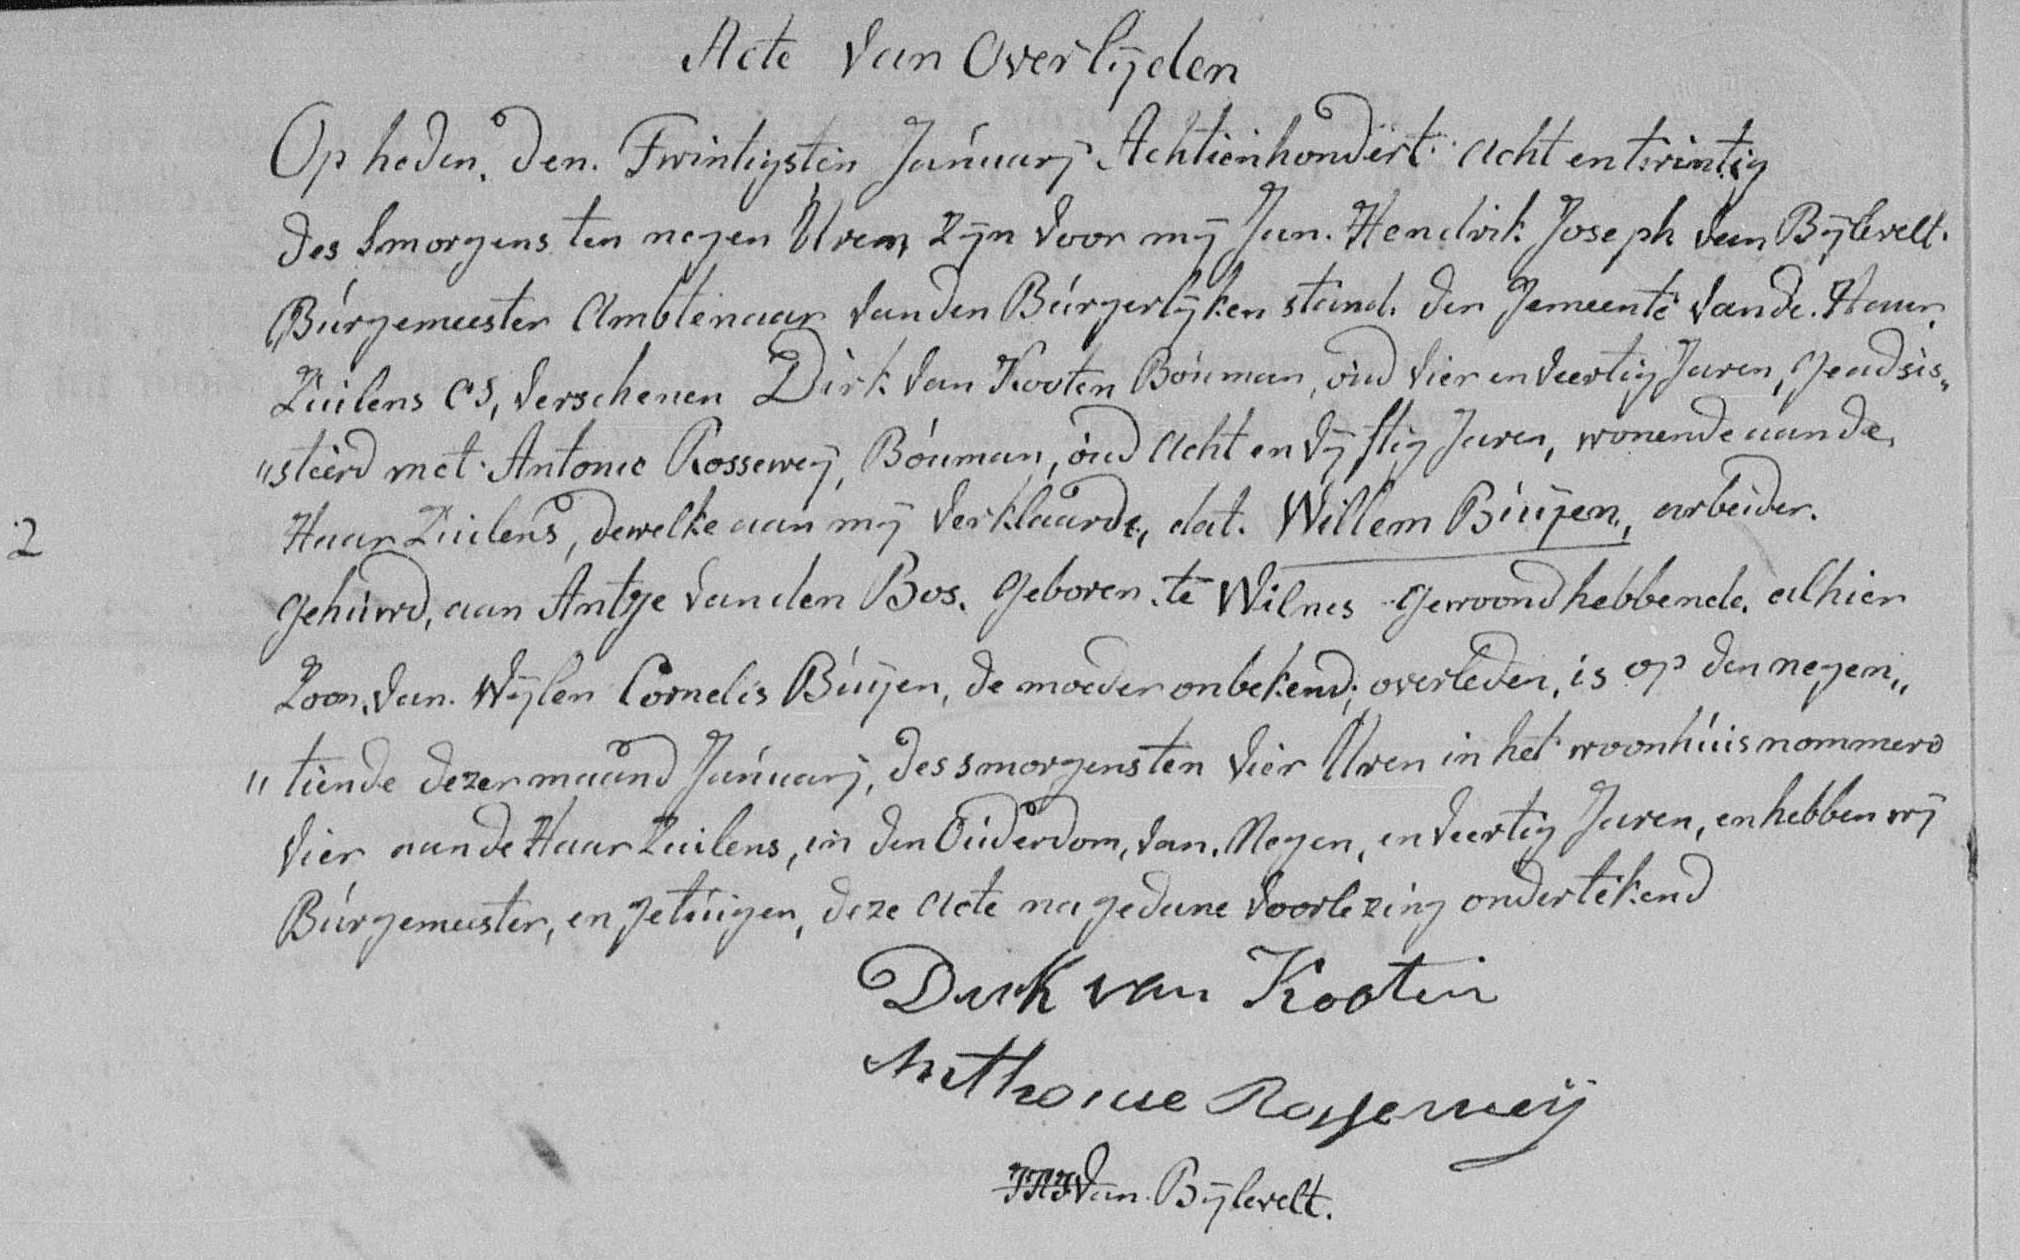 Acte van Overlijden
Op heden, den. Twintigsten Januarij Achtienhondert. acht en twintig
des smorgens ten negen Uren, Zijn voor mij Jan. Hendrik Joseph van Bijlevelt.
Burgemeester Ambtenaar van den Burgerlijken stand. der gemeente van de. Haar.
Zuilens CS, verschenen Dirk van Kooten Bouman, oud vier en veertig Jaren, geadsis„
„steerd met Antonie Rosseweij, Bouman, oud acht en vijftig Jaren, wonende aan de,
2 Haar Zuilens, dewelke aan mij verklaarde, dat. Willem Buijen, arbeider.
gehuwd, aan Antje van den Bos. geboren te Wilnes gewoond hebbende. alhier
Zoon. van. Wijlen Cornelis Buijen, de moeder onbekend; overleden, is op den negen„
„tiende dezer maand Januarij, des smorgens ten vier Uren in het woonhuis nommero
vier aan de Haar Zuilens, in den Ouderdom, van. Negen, en veertig Jaren, en hebben wij
Burgemeester, en getuigen, deze acte na gedane voorlezing ondertekend
Dirk van Kooten
Anthonie Rosseweij
JHJ van Bijlevelt.